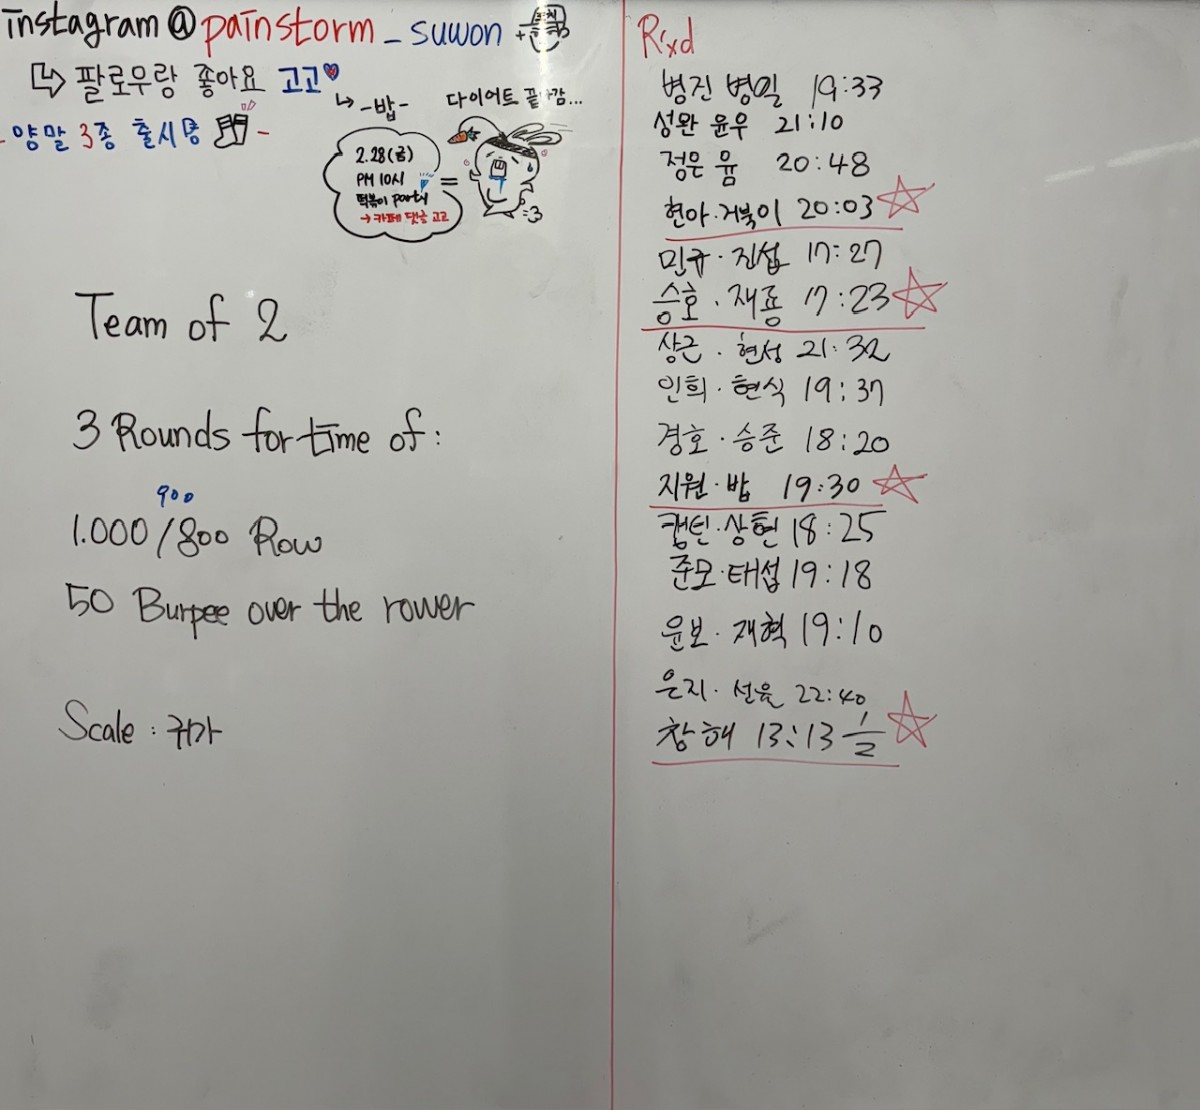 instagram@painstorm_suwon
팔로우랑 좋아요 고고
-밥-
다이어트 끝
- 양말 3종 출시 -
2.28(금)
PM 10시
떡볶이 party
→ 카페 댓글 고고
=
Team of 2
3 Rounds for time of :
900
1.000/800 Row
50 Burpee over the rower
Scale : 귀가
R'xd
병진 병일 19:33
성완 윤우 21:10
정은 윰 20:48
현아·거북이 20:03
민규·진섭 17:27
승호·재종 17:23
상근·현성 21:32
인희·현식 19:37
경호·승준 18:20
지원·밥 19:30
캡틴·상현 18:25
준모·태섭 19:18
윤보·재혁 19:10
은지·선율 22:40
창해 13:13 1/2